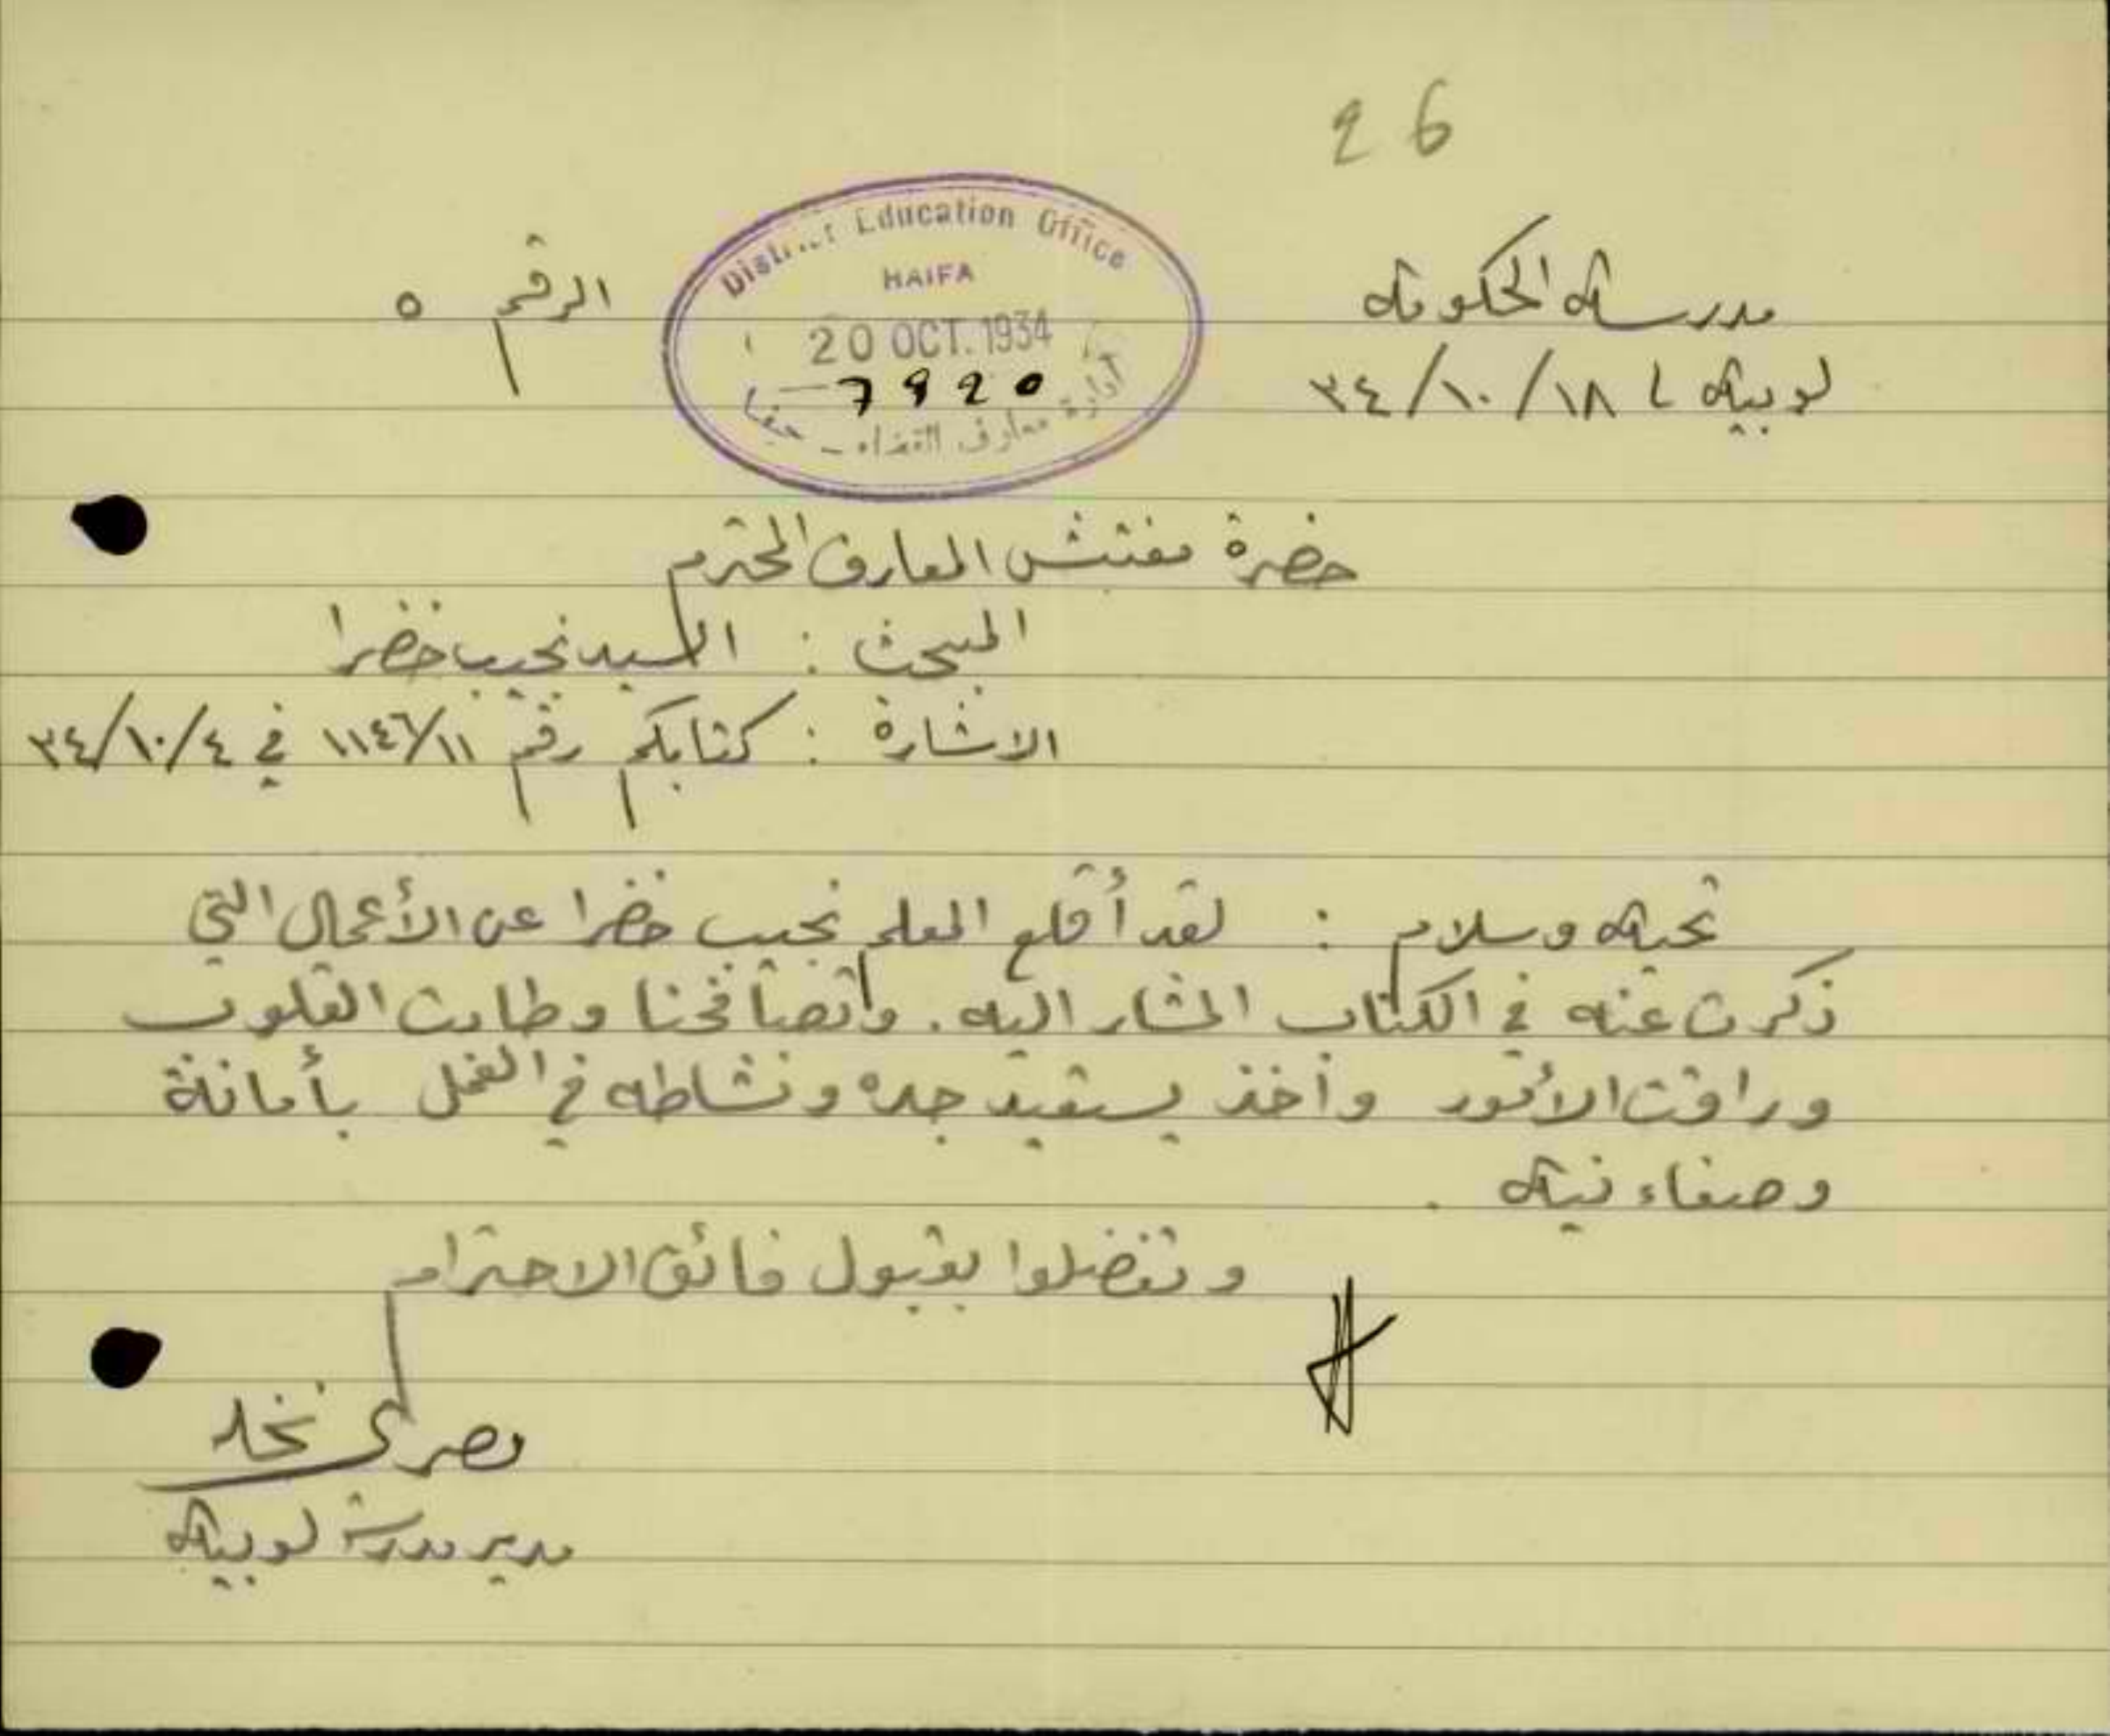 26
مدرسة الحكومة
لوبية ٢ ١٨/١٠/٣٤
الرقم ٥
District Education Office
HAIFA
20 OCT. 1934
7920
ادارة معارف القضاء - حيفا
حضرة مفتش المعارف المحترم
المبحث : السيد نجيب خضرا
الاشارة : كتابكم رقم ١١٤٦/١١ في ٣٤/١٠/٤
تحية وسلام : لقد أقلع المعلم نجيب خضرا عن الأعمال التي
ذكرت عنه في الكتاب المشار اليه. وتصافحنا وطابت القلوب
وراقت الأمور وأخذ يستعيد جده ونشاطه في العمل بأمانة
وصفاء نية .
وتفضلوا بقبول فائق الاحترام
مدير مدرسة لوبية